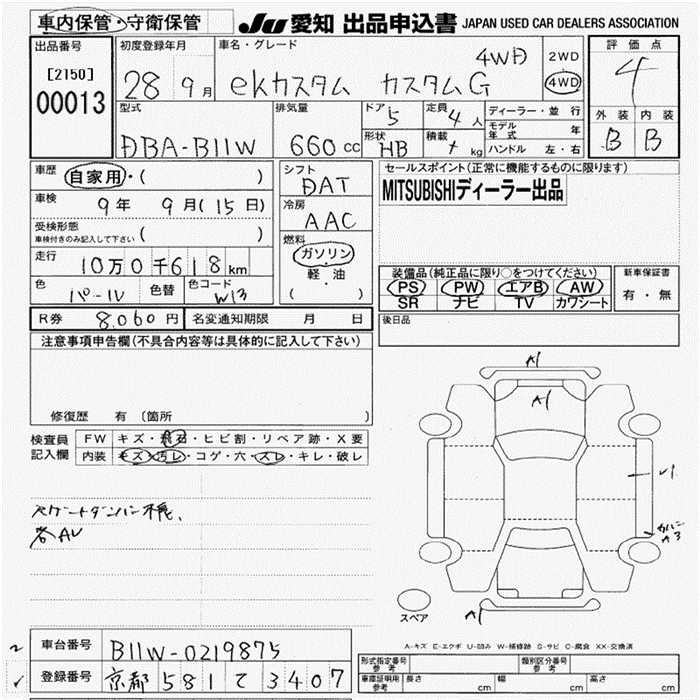 車内保管・守衛保管
JU 愛知 出品申込書 JAPAN USED CAR DEALERS ASSOCIATION
出品番号
[2150]
00013
初度登録年月
28 9月
車名・グレード
ekカスタム カスタムG 4WD
2WD
4WD
評価点
4
外装 内装
B B
型式
DBA-B11W
排気量
660cc
ドア 5
定員 4人
形状 HB
積載 kg
ディーラー・並 行
モデル年式 年
ハンドル 左・右
車歴 自家用・( )
車検 9年 9月(15日)
受検形態
車検付きのみ記入して下さい ( )
走行 10万0千618km
色 パール 色替 色コード W13
シフト DAT
冷房 AAC
燃料
ガソリン
・
軽・油
( )
セールスポイント(正常に機能するものに限ります)
MITSUBISHIディーラー出品
装備品(純正品に限り○をつけてください)
PS PW エアB AW
SR ナビ TV カワシート
新車保証書
有・無
R券 8,060円 名変通知期限 月 日
後日品
注意事項申告欄(不具合内容等は具体的に記入して下さい)
修復歴 有 (箇所 )
検査員記入欄
FW キズ・飛石・ヒビ割・リペア跡・X要
内装 キズ・汚レ・コゲ・穴・スレ・キレ・破レ
各AU
A1
A1
A3
A1
スペア
A-キズ E-エクボ U-凹み W-補修跡 S-サビ C-腐食 XX-交換済
車台番号 B11W-0219875
登録番号 京都 581 て 3407
形式指定番号 参考
類別区分番号 参考
車庫証明用 参考 長さ cm 幅 cm 高さ cm